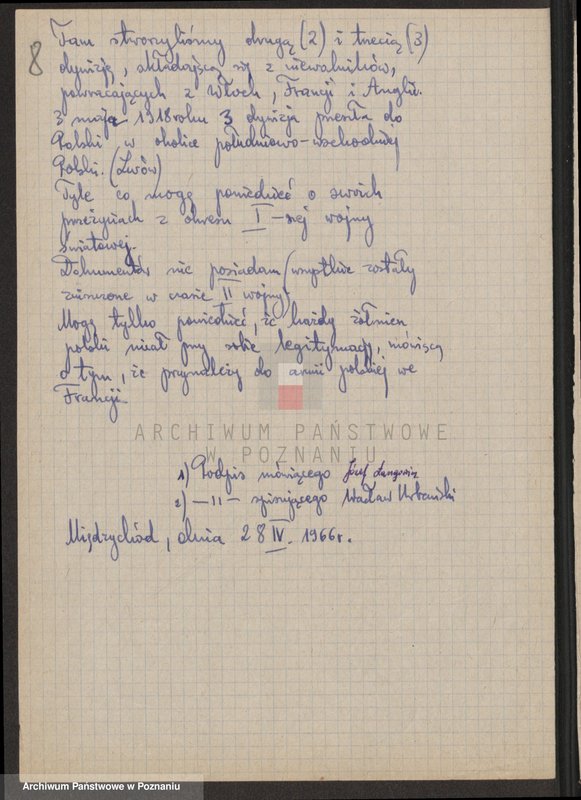 8
Tam stworzyliśmy drugą (2) i trzecią (3)
dywizję, składającą się z niewolników,
powracających z Włoch, Francji i Anglii.
3 maja 1918 roku 3 dywizja przeszła do
Polski w okolice południowo-wschodniej
Polski. (Lwów)
Tyle co mogę powiedzieć o swoich
przeżyciach z okresu I-szej wojny
światowej.
Dokumentów nie posiadam (wszystkie zostały
zniszczone w czasie II wojny)
Mogę tylko powiedzieć, że każdy żołnierz
polski miał przy sobie legitymację, mówiącą
o tym, że przynależy do armii polskiej we
Francji.
ARCHIWUM PAŃSTWOWE
W POZNANIU
1) Podpis mówiącego Józef
2) —11— spisującego Wacław Urbański
Międzychód, dnia 28 IV. 1966 r.
Archiwum Państwowe w Poznaniu